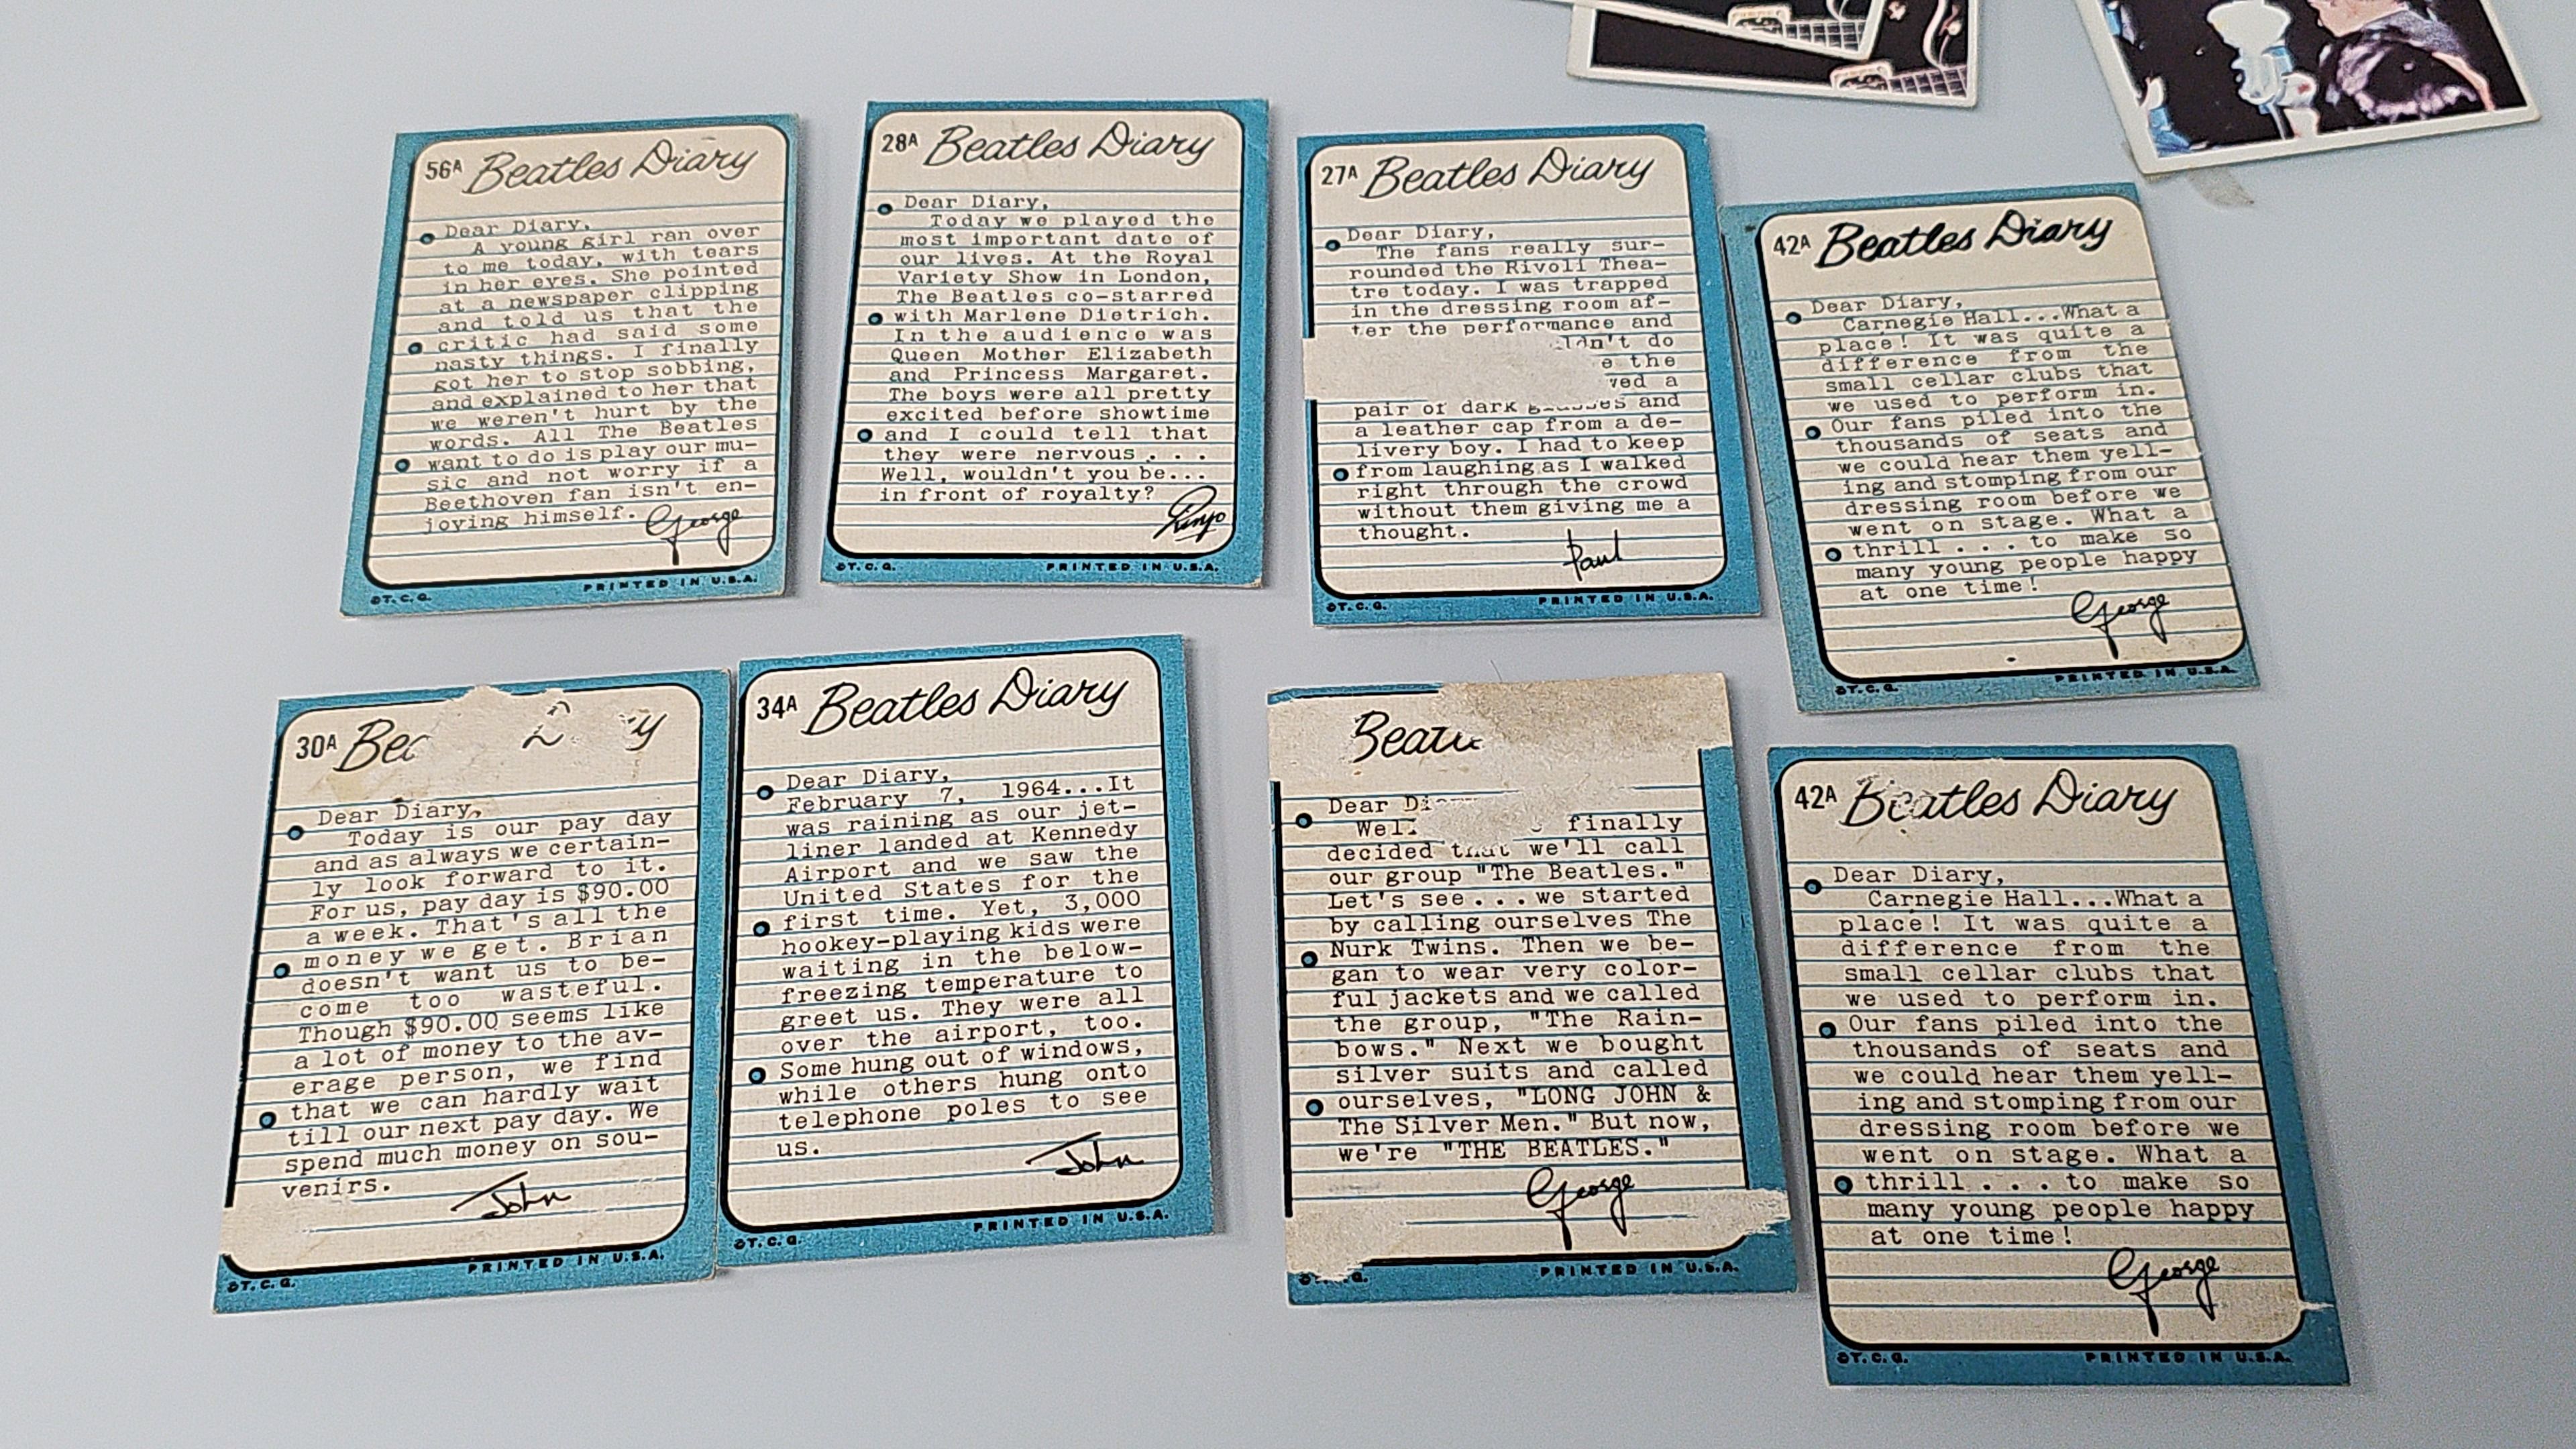 56A Beatles Diary
Dear Diary,
A young girl ran over
to me today, with tears
in her eyes. She pointed
at a newspaper clipping
and told us that the
critic had said some
nasty things. I finally
got her to stop sobbing,
and explained to her that
we weren't hurt by the
words. All The Beatles
want to do is play our mu-
sic and not worry if a
Beethoven fan isn't en-
joying himself. George
©T.C.G. PRINTED IN U.S.A.
28A Beatles Diary
Dear Diary,
Today we played the
most important date of
our lives. At the Royal
Variety Show in London,
The Beatles co-starred
with Marlene Dietrich.
In the audience was
Queen Mother Elizabeth
and Princess Margaret.
The boys were all pretty
excited before showtime
and I could tell that
they were nervous . . .
Well, wouldn't you be...
in front of royalty?
Ringo
©T.C.G. PRINTED IN U.S.A.
27A Beatles Diary
Dear Diary,
The fans really sur-
rounded the Rivoli Thea-
tre today. I was trapped
in the dressing room af-
ter the performance and
do
the
a
pair of dark and
a leather cap from a de-
livery boy. I had to keep
from laughing as I walked
right through the crowd
without them giving me a
thought.
Paul
©T.C.G. PRINTED IN U.S.A.
42A Beatles Diary
Dear Diary,
Carnegie Hall...What a
place! It was quite a
difference from the
small cellar clubs that
we used to perform in.
Our fans piled into the
thousands of seats and
we could hear them yell-
ing and stomping from our
dressing room before we
went on stage. What a
thrill . . . to make so
many young people happy
at one time!
George
©T.C.G. PRINTED IN U.S.A.
30A
Dear Diary,
Today is our pay day
and as always we certain-
ly look forward to it.
For us, pay day is $90.00
a week. That's all the
money we get. Brian
doesn't want us to be-
come too wasteful.
Though $90.00 seems like
a lot of money to the av-
erage person, we find
that we can hardly wait
till our next pay day. We
spend much money on sou-
venirs.
John
©T.C.G. PRINTED IN U.S.A.
34A Beatles Diary
Dear Diary,
February 7, 1964...It
was raining as our jet-
liner landed at Kennedy
Airport and we saw the
United States for the
first time. Yet, 3,000
hookey-playing kids were
waiting in the below-
freezing temperature to
greet us. They were all
over the airport, too.
Some hung out of windows,
while others hung onto
telephone poles to see
us.
John
©T.C.G. PRINTED IN U.S.A.
Dear
finally
decided that we'll call
our group "The Beatles."
Let's see...we started
by calling ourselves The
Nurk Twins. Then we be-
gan to wear very color-
ful jackets and we called
the group, "The Rain-
bows." Next we bought
silver suits and called
ourselves, "LONG JOHN &
The Silver Men." But now,
we're "THE BEATLES."
George
PRINTED IN U.S.A.
42A Beatles Diary
Dear Diary,
Carnegie Hall...What a
place! It was quite a
difference from the
small cellar clubs that
we used to perform in.
Our fans piled into the
thousands of seats and
we could hear them yell-
ing and stomping from our
dressing room before we
went on stage. What a
thrill . . . to make so
many young people happy
at one time!
George
©T.C.G. PRINTED IN U.S.A.